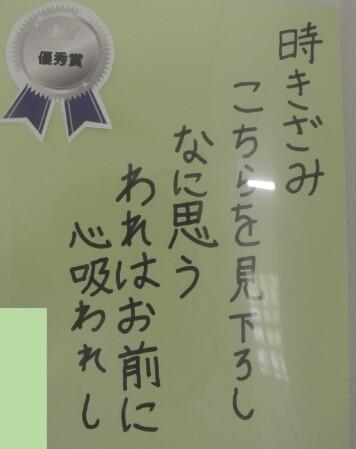 優秀賞
時きざみ
こちらを見下ろし
なに思う
われはお前に
心吸われし